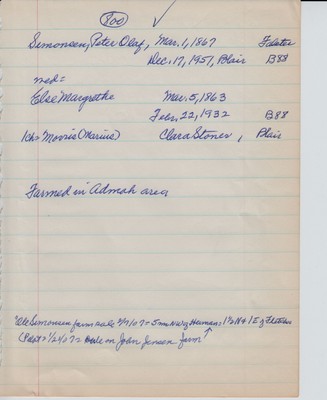 800
Simonsen, Peter Olaf, Mar. 1, 1867
Dec. 17, 1957, Blair B88
med =
Else Margrethe Mar. 5, 1863
Febr. 22, 1932 B88
1ch = Morris (Marius) Clara Stoner, Blair
Farmed in Admah area
Simonsen farm sale 2/9/07 = 5 mi NW of Herman = 1½ N + 1 E of
(Pilot = 1/24/07 = sale on John Jensen farm